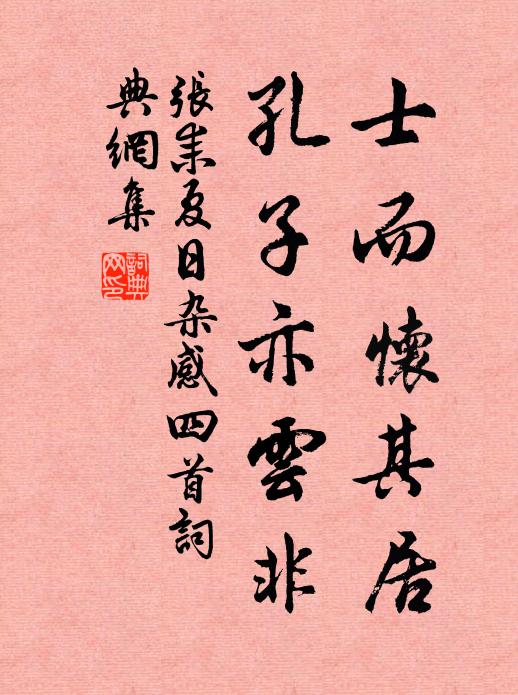 士而懷其居
孔子亦雲非
張耒夏日杂感四首詞
典網集
詞典網印